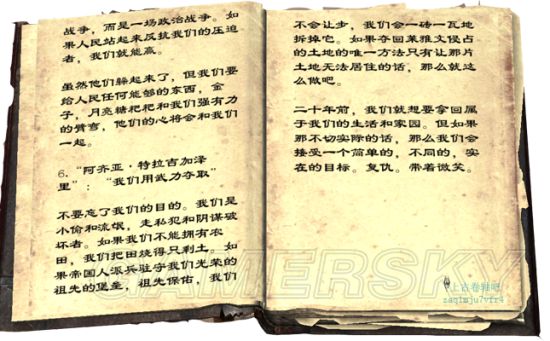 战争，而是一场政治战争。如
果人民站起来反抗我们的压迫
者，我们就能赢。
虽然他们躲起来了，但我们要
给人民任何能够的东西，金
子，月亮糖和我们强有力
的臂弯，他们的心将会和我们
一起。
6.“阿齐亚·特拉吉加泽
里”：“我们用武力夺取”
不要忘了我们的目的。我们是
小偷和流氓，走私犯和阴谋破
坏者。如果我们不能拥有农
田，我们把田烧得只剩土。如
果帝国人派兵驻守我们光荣的
祖先的堡垒，祖先保佑，我们
不会让步，我们会一砖一瓦地
拆掉它。如果夺回莱雅文侵占
的土地的唯一方法只有让那片
土地无法居住的话，那么就这
么做吧。
二十年前，我们就想要拿回属
于我们的生活和家园。但如果
那不切实际的话，那么我们会
接受一个简单的，不同的，实
在的目标。复仇。带着微笑。
GAMERSKY
上古卷轴吧
zaq1mju7vfr4